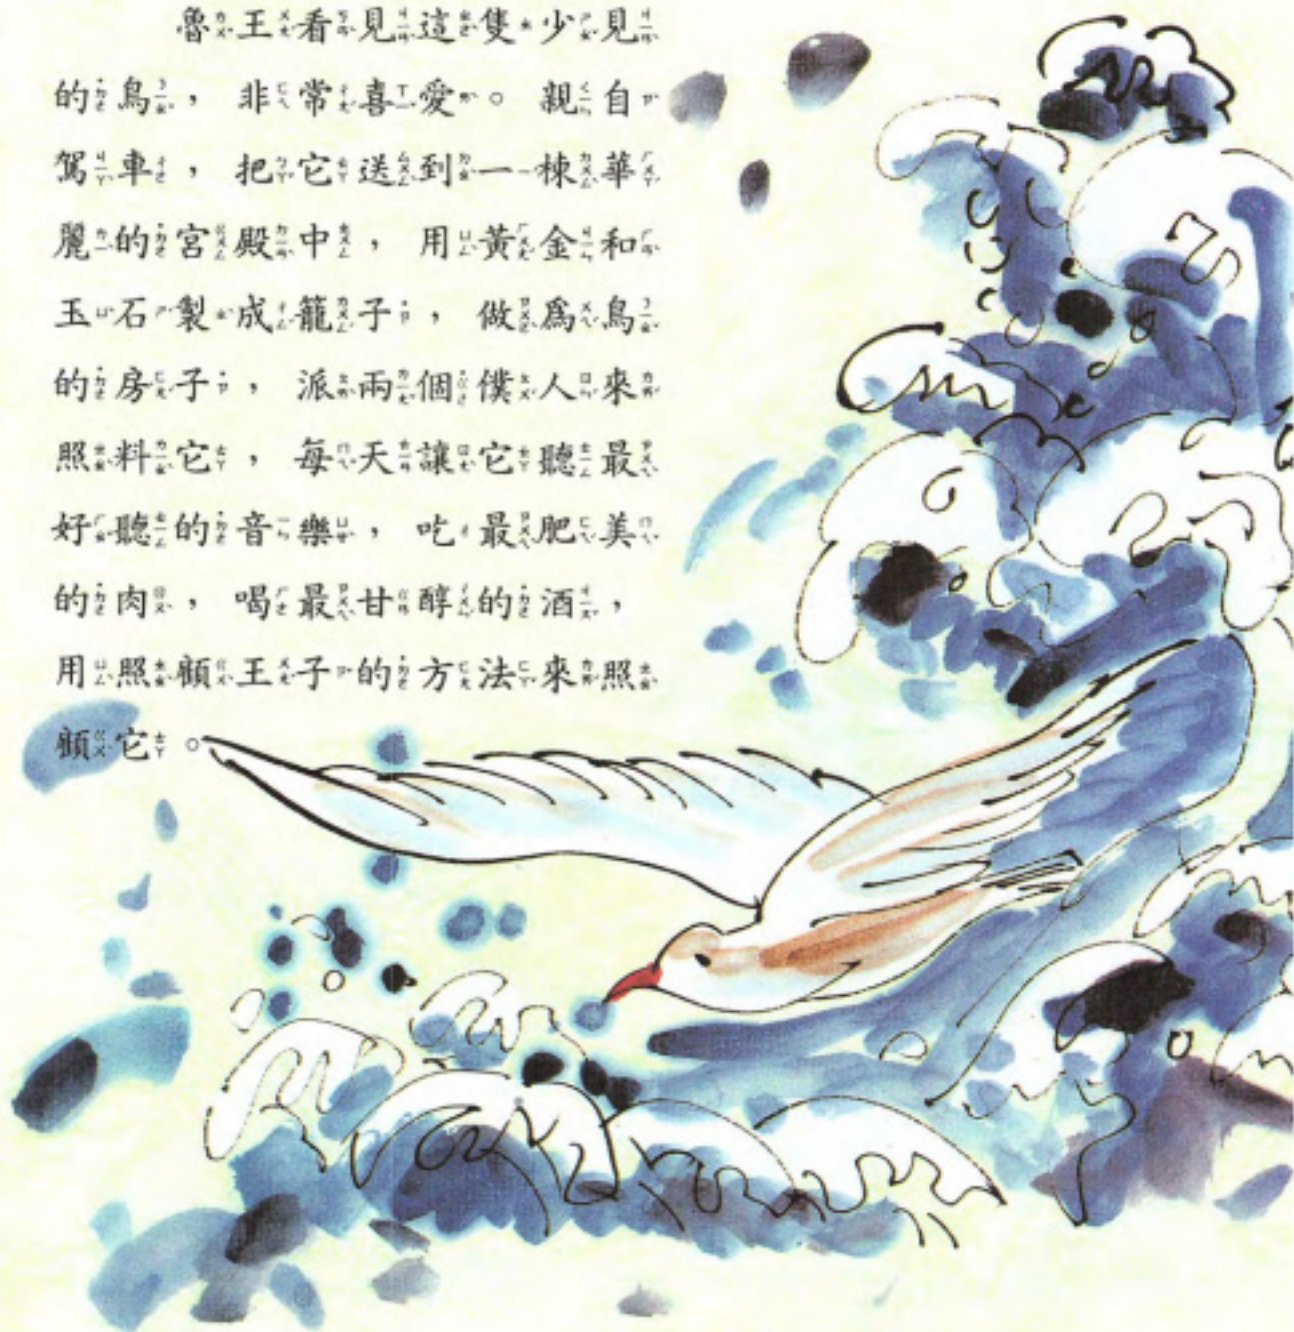 魯王看見這隻少見
的鳥，非常喜愛。親自
駕車，把它送到一棟華
麗的宮殿中，用黃金和
玉石製成籠子，做爲鳥
的房子，派兩個僕人來
照料它，每天讓它聽最
好聽的音樂，吃最肥美
的肉，喝最甘醇的酒，
用照顧王子的方法來照
顧它。